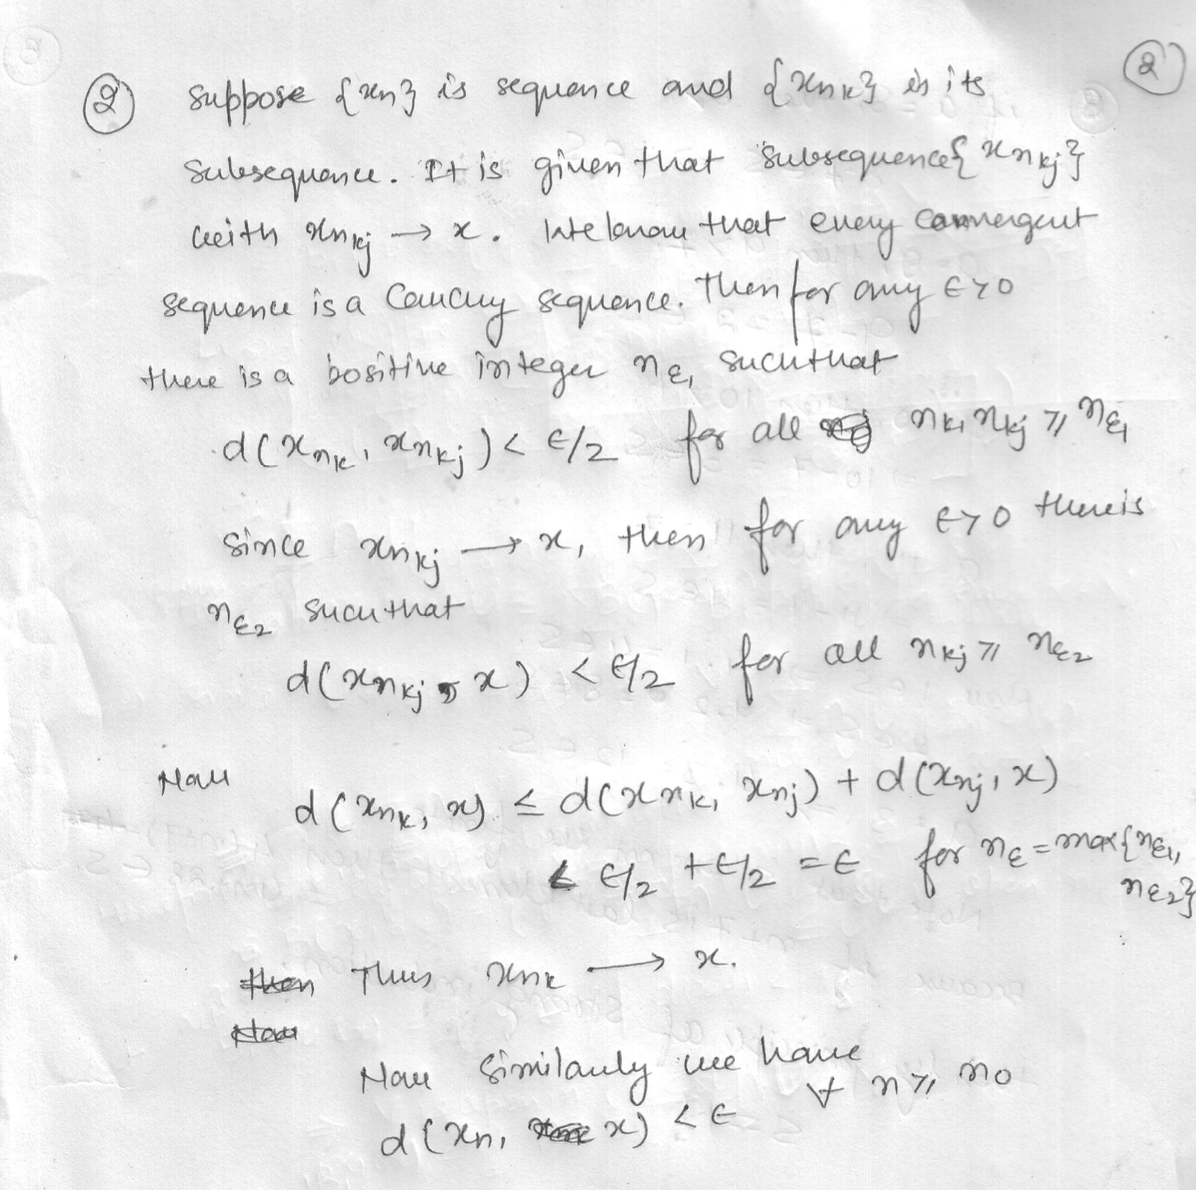 ②
② suppose {xn} is sequence and {xnk} is its
subsequence. It is given that subsequence{xnkj}
with xnkj → x. We know that every convergent
sequence is a Cauchy sequence. Then for any ε>0
there is a positive integer nε1 such that
d(xnk, xnkj) < ε/2 for all nk, nkj ≥ nε1
since xnkj → x, then for any ε>0 there is
nε2 such that
d(xnkj, x) < ε/2 for all nkj ≥ nε2
Now
d(xnk, x) ≤ d(xnk, xnj) + d(xnj, x)
< ε/2 + ε/2 = ε for nε = max{nε1,
nε2}
then Thus xnk → x.
Now
Now similarly we have
d(xn, x) < ε ∀ n ≥ n0